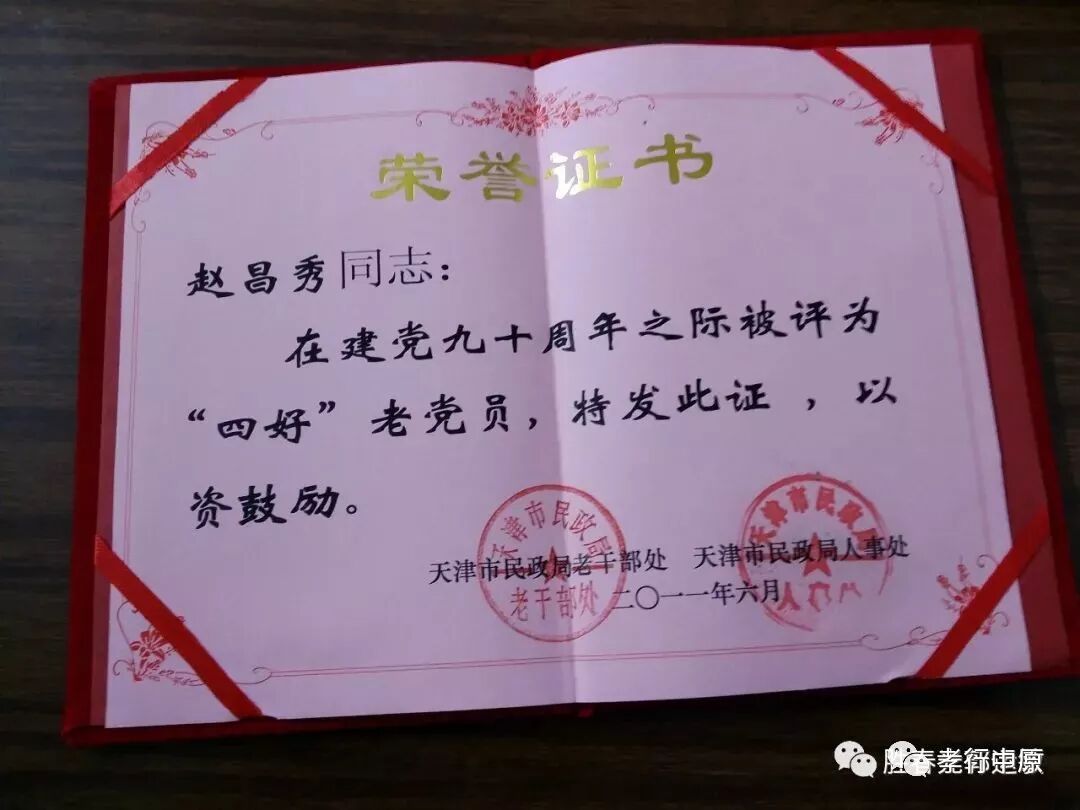 荣誉证书
赵昌秀同志：
在建党九十周年之际被评为
“四好”老党员，特发此证，以
资鼓励。
天津市民政局老干部处 天津市民政局人事处
二〇一一年六月
天津市民政局
老干部处
天津市民政局